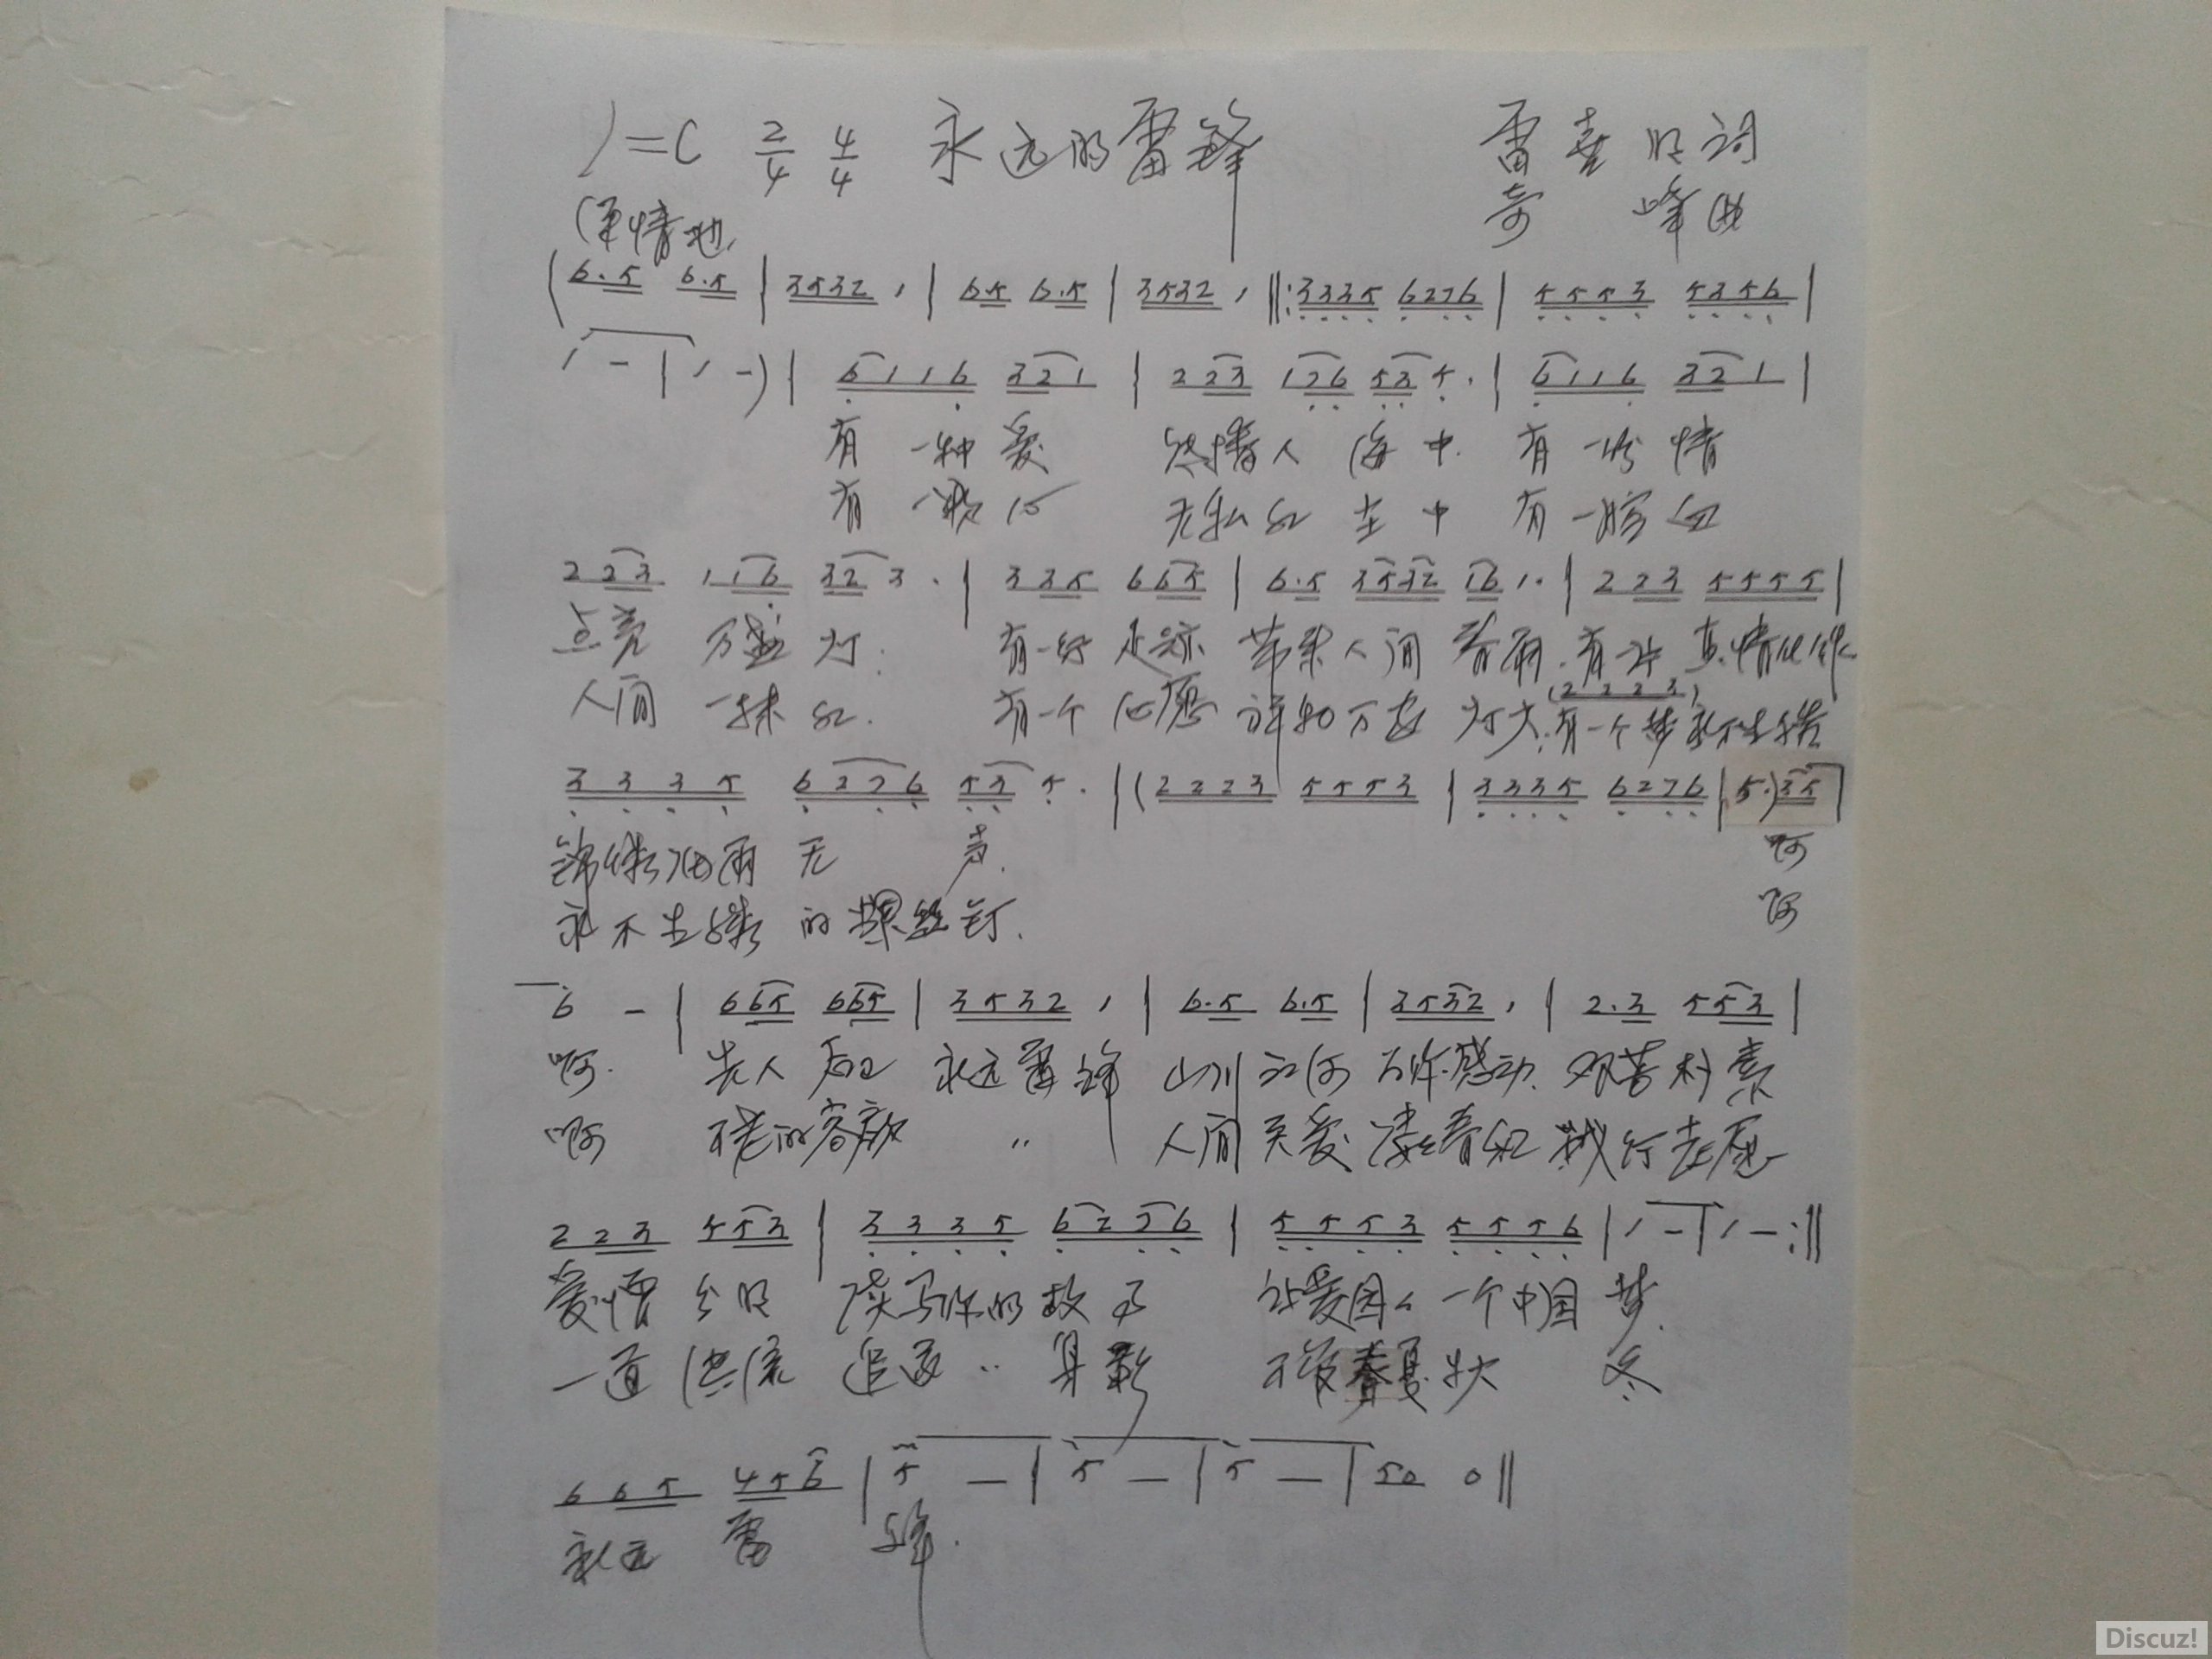 1=C 2/4 4/4 永远的雷锋 雷喜明词
奇峰曲
(深情地)
(6.5 6.5 | 3532 1 | 6.5 6.5 | 3532 1 ‖: 3335 6276 | 5553 5356 |
1 - | 1 -) | 6116 321 | 2 23 1 76 53 5. | 6116 321 |
有一种爱 传播人海中 有一份情
有一颗心 无私红 中 有一腔血
2 23 1 16 32 3. | 3 35 6 65 | 6.5 3532 16 1. | 2 23 5555 |
点亮万盏灯. 有一行足迹 带来人间春雨. 有一 真情化作
(2 2 2 3)
人间一抹红. 有一个心愿 万家灯火. 有一个梦永不生锈
3335 6276 53 5. | (2223 5553 | 3335 6276 | 5.) 35 |
无声. 啊
永不生锈的螺丝钉. 啊
6 - | 6 65 6 65 | 3532 1 | 6.5 6.5 | 3532 1 | 2.3 5 53 |
啊. 先人后己 永远雷锋 山川江河 感动. 艰苦朴素
啊 不老的容颜 〃 人间关爱 春红
2 23 5 53 | 3335 6276 | 5553 5556 | 1 - | 1 - :‖
爱憎分明 读写你的故事 一个中国梦.
一道洪流 追逐 〃 身影 不管春夏秋冬
6 65 456 | 5 - | 5 - | 5 - | 50 0 ‖
永远雷锋.
Discuz!